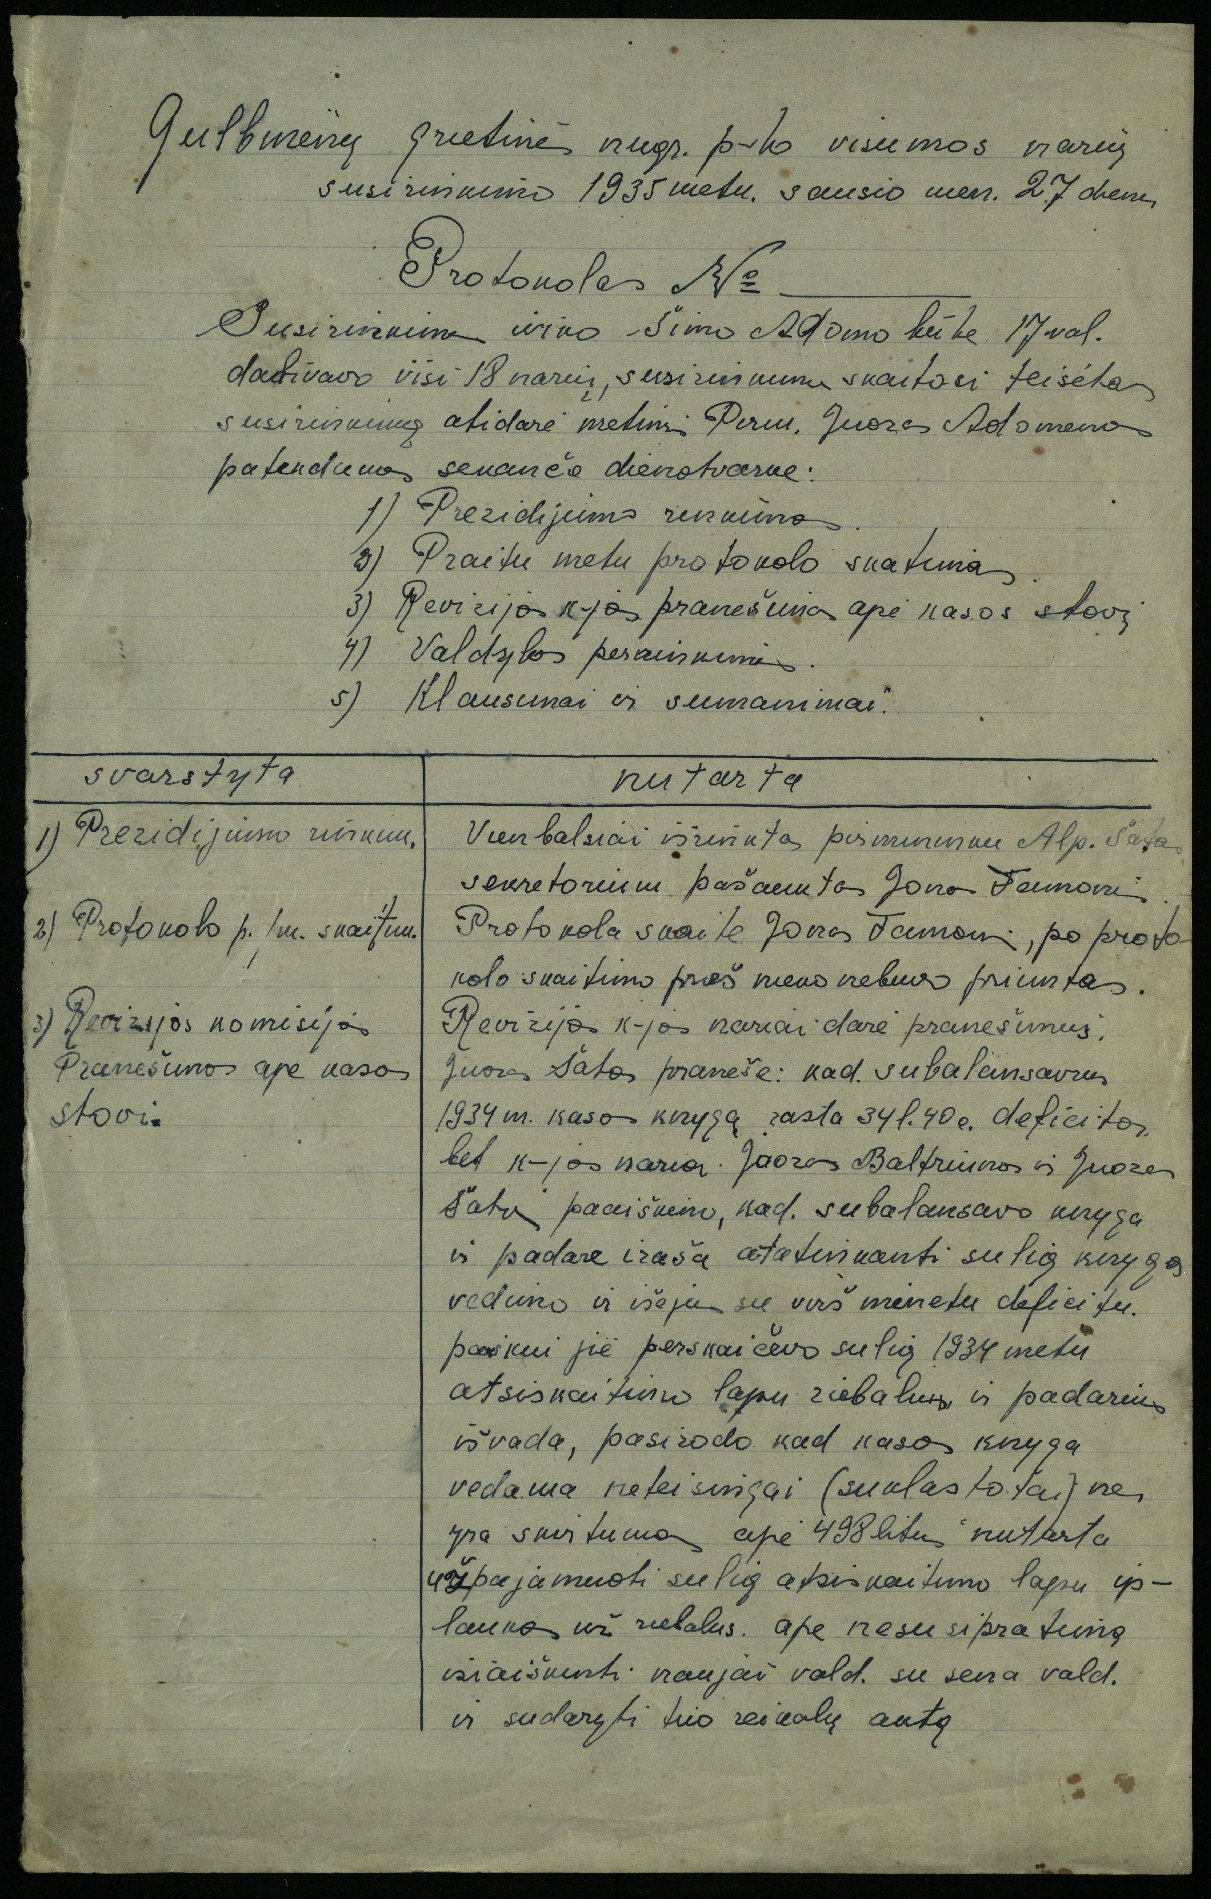 Gulbinėnų grietinės nugr. p-to visumos narių
susirinkimo 1935 metu. sausio men. 27 dienų
Protokolas №
Susirinkima iviko Šimo Adomo būte 17 val.
dalivavo visi 18 narių, susirinkima skaitosi teisėtas
susirinkimą atidarė metinis Pirm. Juozas Adomenas
patekdamas sekančė dienotvarke:
1) Prezidijumo rinkimas.
2) Praitu metu protokolo skatimas.
3) Revizijos k-jos pranešimas apė kasos stovį
4) Valdybos perainkimas.
5) Klausimai ir sumanimai.
svarstyta
nutarta
1) Prezidijumo rinkim.
Vienbalsiai išrinktas pirmininku Alp. Šatas
sekretorium pašauktas Jonas
2) Protokolo p. /m. skaitim.
Protokola skaitė Jonas, po proto-
kolo skaitimo prieš nieko nebuvo priimtas.
3) Revizijos komisijos
Revizijos k-jos nariai darė pranešimus.
Pranešimas apė kasos
Juozas Šatas pranešė: kad. subalansavus
stovi.
1934 m. kasos knygą rasta 34 l. 40 c. deficitas,
bet k-jos nariai. Juozas Baltrūnas ir Juozas
Šatas paaiškino, kad. subalansavo knyga
ir padarė iraša atatinkanti sulig knygos
vedimo ir išėjus su virš minetu deficitu.
paskui jiė perskaičevo sulig 1934 metu
atsiskaitimo lapu riebalus ir padarius
išvada, pasirodo kad kasos knyga
vedama neteisingai (suklastotai) nes
yra skirtumas apė 498 litus nutarta
užpajamuoti sulig atsiskaitimo lapu ip-
laukas už riebalus. apė nesusipratimą
išiaiškinti naujai vald. su sena vald.
ir sudaryti tuo reikalų aktą